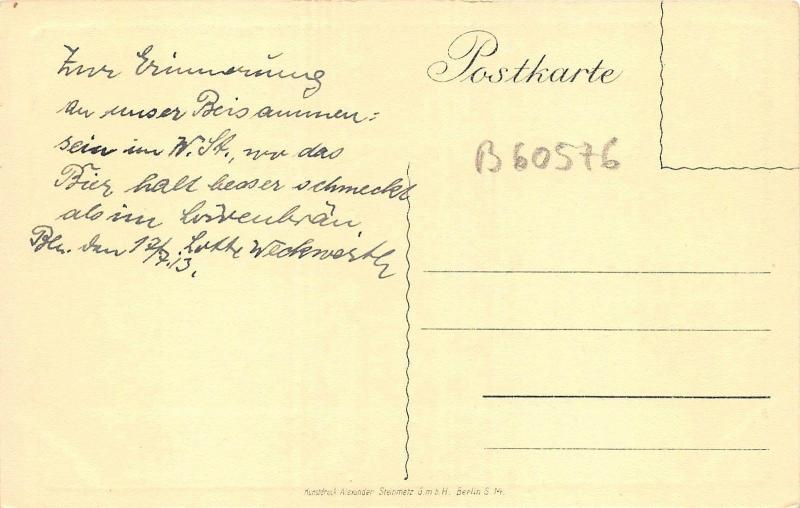 Zur Erinnerung
an unser Beisammen=
sein im W. St., wo das
Bier halt besser schmeckt
als im Löwenbräu.
Bln. den 17/7.13. Lotte Weckwerth
Postkarte
B 60576
Kunstdruck Alexander Steinmetz G.m.b.H. Berlin S 14.